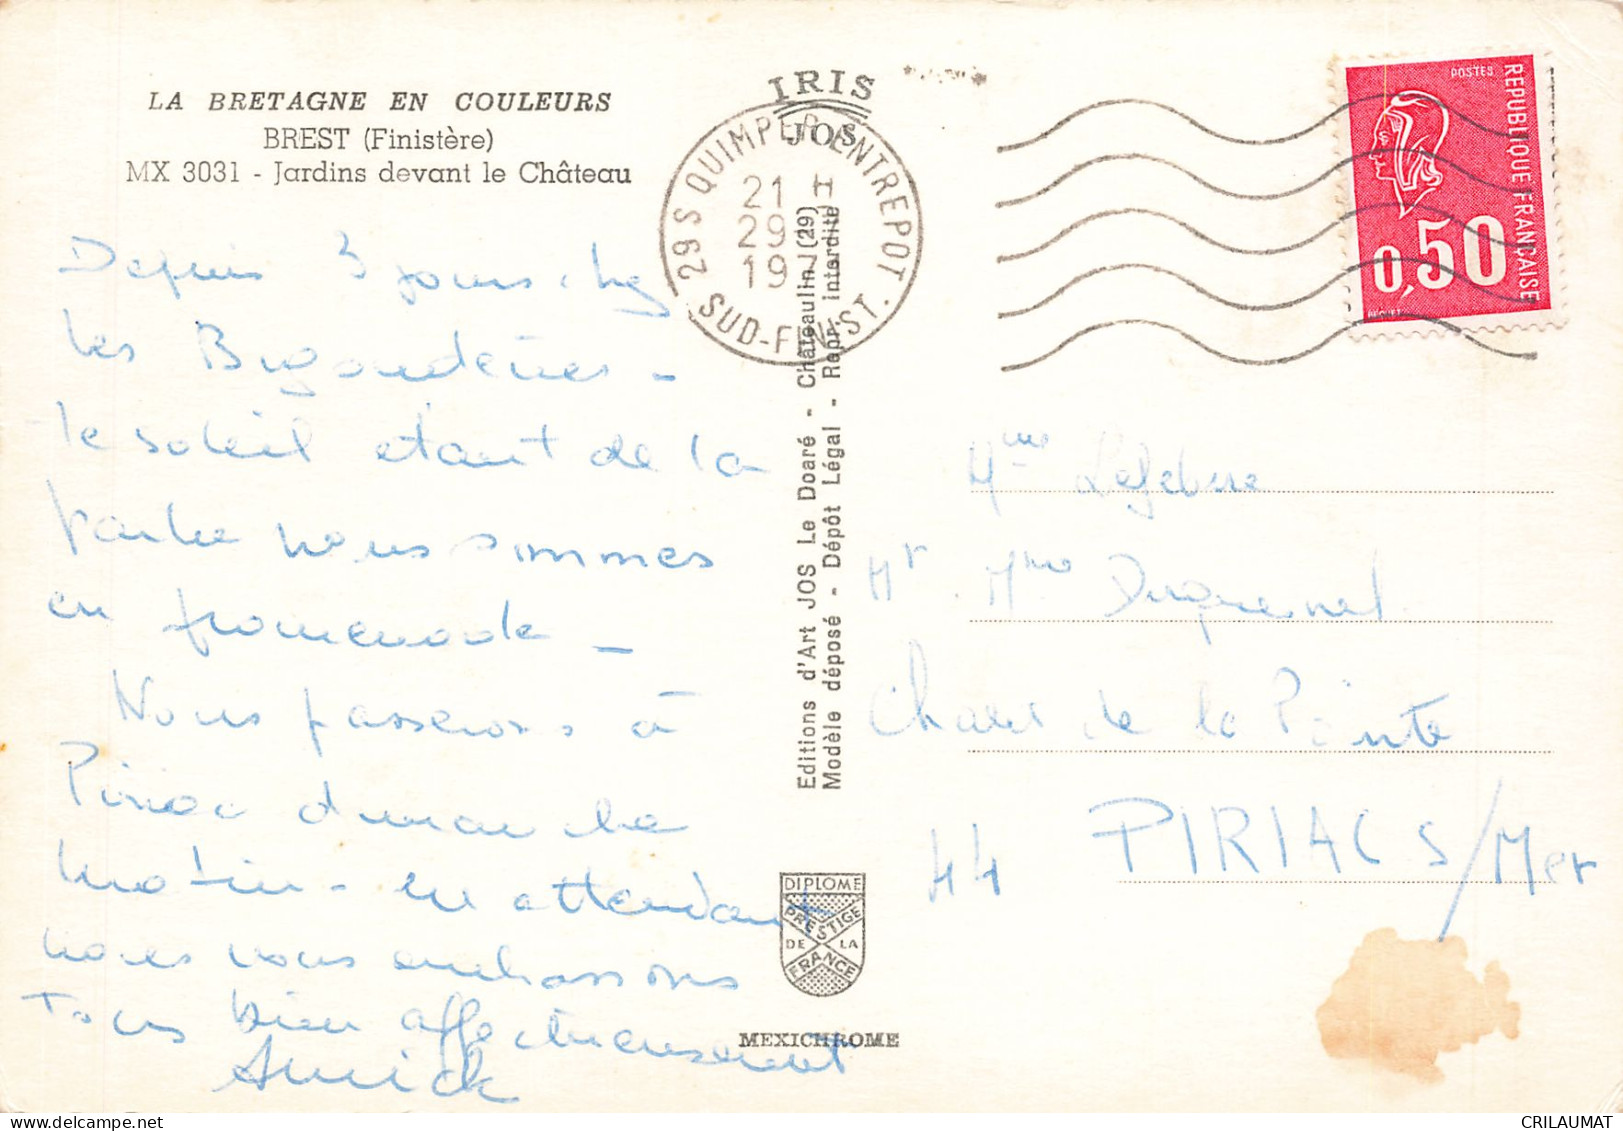 LA BRETAGNE EN COULEURS
BREST (Finistère)
MX 3031 - Jardins devant le Château
Depuis 3 jours chez
les Bigoudènes -
le soleil étant de la
partie nous sommes
en promenade -
Nous passerons à
Piriac dimanche
matin - en attendant
nous vous embrassons
Tous bien affectueusement
Annick
IRIS
JOS
29 S QUIMPER ENTREPOT
21 H
29
197
SUD-FINIST.
Editions d'Art JOS Le Doaré - Châteaulin (29)
Modèle déposé - Dépôt Légal - Repr. interdite
DIPLOME
PRESTIGE
DE LA
FRANCE
MEXICHROME
POSTES
REPUBLIQUE FRANÇAISE
0,50
Mme Lefebvre
Mr Mme Duquesnel
Chalet de la Pointe
44 PIRIAC S/Mer
CRILAUMAT